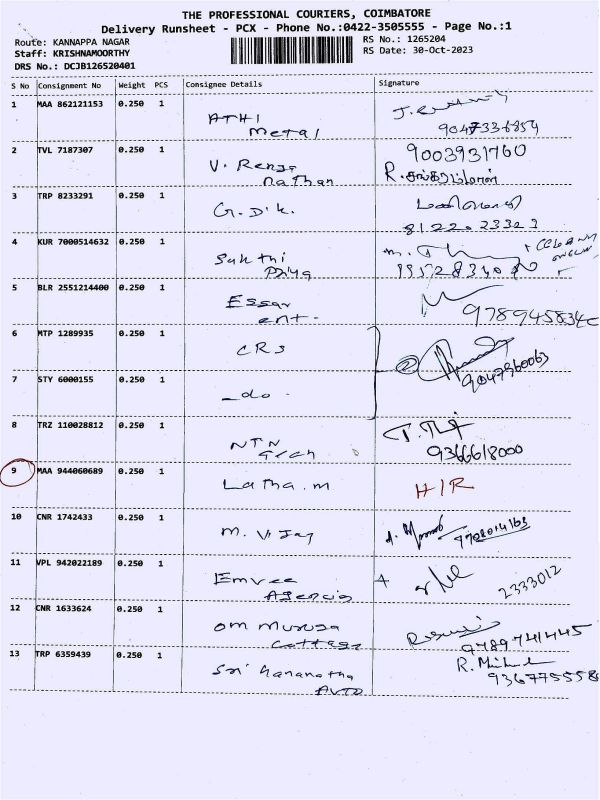 THE PROFESSIONAL COURIERS, COIMBATORE
Delivery Runsheet - PCX - Phone No.:0422-3505555 - Page No.:1
Route: KANNAPPA NAGAR
RS No.: 1265204
Staff: KRISHNAMOORTHY
RS Date: 30-Oct-2023
DRS No.: DCJB126520401
S No Consignment No Weight PCS Consignee Details Signature
1 MAA 862121153 0.250 1 ATHI
Metal
9047336854
2 TVL 7187307 0.250 1 V. Renga
nathan
9003931760
R.
3 TRP 8233291 0.250 1 G. D. K.
8122023323
4 KUR 7000514632 0.250 1 Sakthi
Priya
5 BLR 2551214400 0.250 1 Essar
ent.
6 MTP 1289935 0.250 1 CRS
7 STY 6000155 0.250 1 -do-
9047960063
8 TRZ 110028812 0.250 1 NTN
Tech
9366618000
9 MAA 944060689 0.250 1 Latha.m H/R
10 CNR 1742433 0.250 1 M. Vijay
9708014163
11 VPL 942022189 0.250 1 Emvee
Agencies
2333012
12 CNR 1633624 0.250 1 om muruga
Cottage
9789741445
13 TRP 6359439 0.250 1 Sri
Auto
R.
936775558